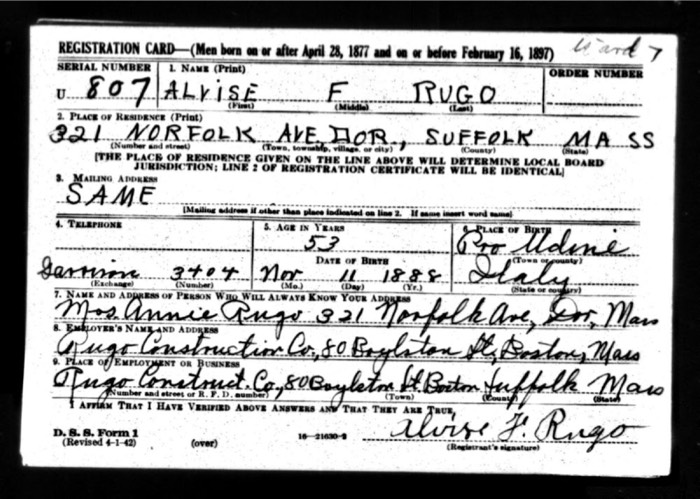 REGISTRATION CARD—(Men born on or after April 28, 1877 and on or before February 16, 1897) Ward 7
SERIAL NUMBER 1. NAME (Print) ORDER NUMBER
U 807 ALVISE F RUGO
(First) (Middle) (Last)
2. PLACE OF RESIDENCE (Print)
321 NORFOLK AVE DOR, SUFFOLK MASS
(Number and street) (Town, township, village, or city) (County) (State)
[THE PLACE OF RESIDENCE GIVEN ON THE LINE ABOVE WILL DETERMINE LOCAL BOARD
JURISDICTION; LINE 2 OF REGISTRATION CERTIFICATE WILL BE IDENTICAL]
3. MAILING ADDRESS
SAME
[Mailing address if other than place indicated on line 2. If same insert word same]
4. TELEPHONE 5. AGE IN YEARS 6. PLACE OF BIRTH
53 Pro Udine
DATE OF BIRTH (Town or county)
Garrison 3404 Nov 11 1888 Italy
(Exchange) (Number) (Mo.) (Day) (Yr.) (State or country)
7. NAME AND ADDRESS OF PERSON WHO WILL ALWAYS KNOW YOUR ADDRESS
Mrs. Annie Rugo 321 Norfolk Ave, Dor, Mass
8. EMPLOYER'S NAME AND ADDRESS
Rugo Construction Co., 80 Boylston St, Boston, Mass
9. PLACE OF EMPLOYMENT OR BUSINESS
Rugo Construct. Co., 80 Boylston St. Boston Suffolk Mass
(Number and street or R. F. D. number) (Town) (County) (State)
I AFFIRM THAT I HAVE VERIFIED ABOVE ANSWERS AND THAT THEY ARE TRUE.
Alvise F. Rugo
D. S. S. Form 1
(Revised 4-1-42) (over) 16—21630-2 (Registrant's signature)